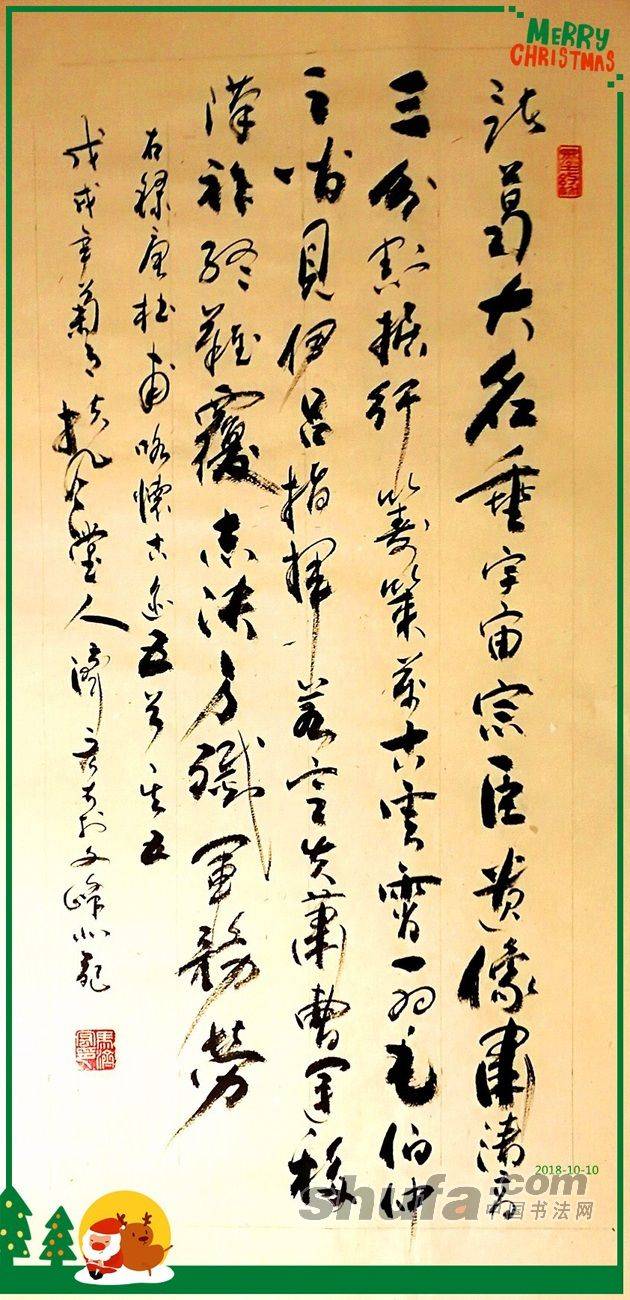 MERRY
CHRISTMAS
諸葛大名垂宇宙宗臣遺像肅清高
三分割據紆籌策萬古雲霄一羽毛伯仲
之間見伊呂指揮若定失蕭曹運移
漢祚終難覆志決身殲軍務勞
右錄唐杜甫咏懷古迹五首其五
戊戌年菊月扶風堂人濟書於文峰
2018-10-10
shufa.com
中国书法网